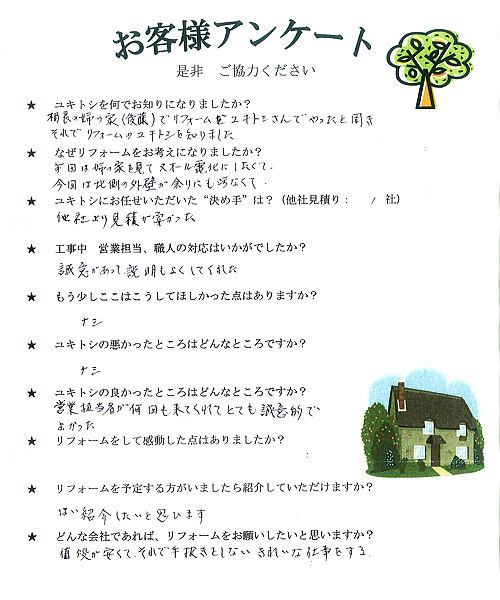 お客様アンケート
是非　ご協力ください
★　ユキトシを何でお知りになりましたか？
相良の姉の家(後藤)でリフォームをユキトシさんでやったと聞き
それでリフォームのユキトシを知りました
★　なぜリフォームをお考えになりましたか？
前回は姉の家を見てオール電化にしたくて、
今回は北側の外壁が余りにも汚なくて.
★　ユキトシにお任せいただいた“決め手”は？（他社見積り：　1　社）
他社より見積が安かった
★　工事中　営業担当、職人の対応はいかがでしたか？
誠意があって、説明もよくしてくれた
★　もう少しここはこうしてほしかった点はありますか？
ナシ
★　ユキトシの悪かったところはどんなところですか？
ナシ
★　ユキトシの良かったところはどんなところですか？
営業担当者が何回も来てくれてとても誠意的で
よかった
★　リフォームをして感動した点はありますか？
★　リフォームを予定する方がいましたら紹介していただけますか？
はい紹介したいと思ひます
★　どんな会社であれば、リフォームをお願いしたいと思いますか？
値段が安くて、それで手抜きとしない きれいな仕事をする.